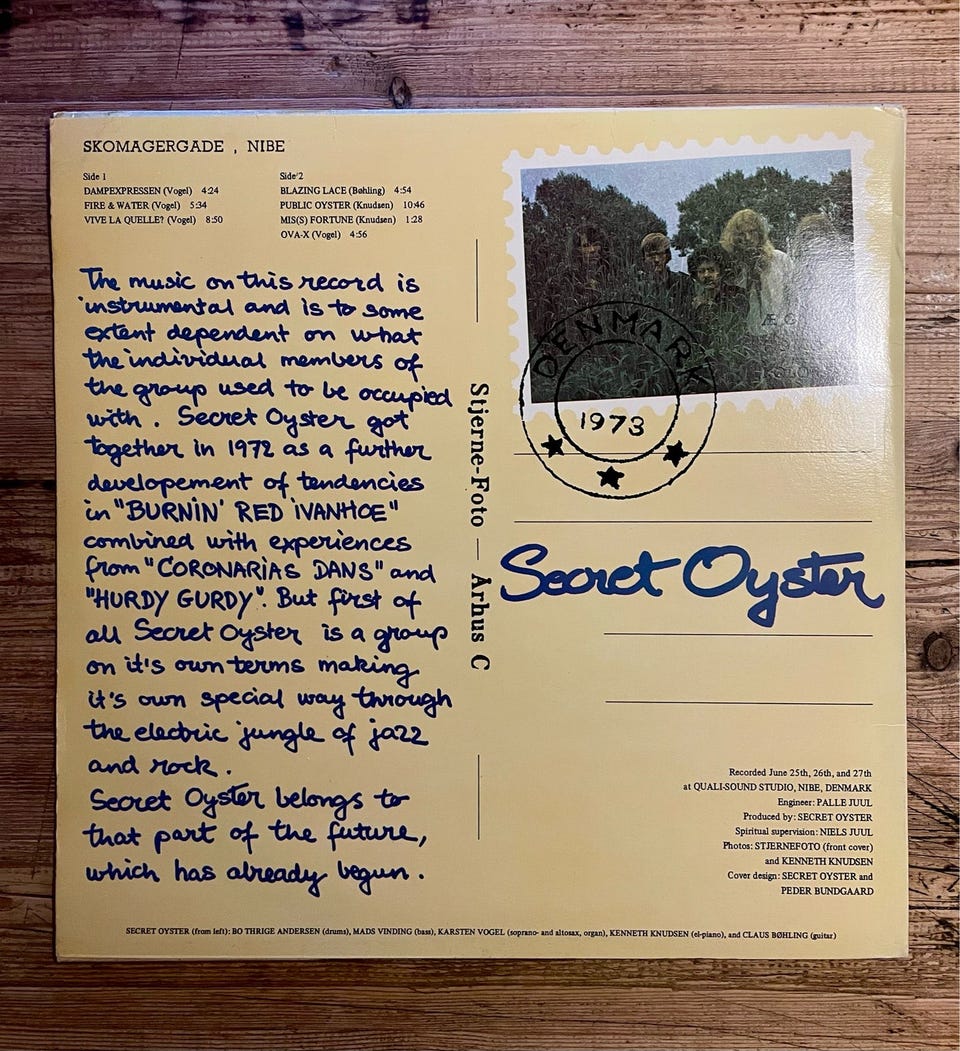 SKOMAGERGADE , NIBE
Side 1
DAMPEXPRESSEN (Vogel) 4:24
FIRE & WATER (Vogel) 5:34
VIVE LA QUELLE? (Vogel) 8:50
Side 2
BLAZING LACE (Bøhling) 4:54
PUBLIC OYSTER (Knudsen) 10:46
MIS(S) FORTUNE (Knudsen) 1:28
OVA-X (Vogel) 4:56
The music on this record is
instrumental and is to some
extent dependent on what
the individual members of
the group used to be occupied
with. Secret Oyster got
together in 1972 as a further
developement of tendencies
in "BURNIN' RED IVANHOE"
combined with experiences
from "CORONARIAS DANS" and
"HURDY GURDY". But first of
all Secret Oyster is a group
on it's own terms making
it's own special way through
the electric jungle of jazz
and rock.
Secret Oyster belongs to
that part of the future,
which has already begun.
Stjerne-Foto — Århus C
DENMARK
1973
Secret Oyster
Recorded June 25th, 26th, and 27th
at QUALI-SOUND STUDIO, NIBE, DENMARK
Engineer: PALLE JUUL
Produced by: SECRET OYSTER
Spiritual supervision: NIELS JUUL
Photos: STJERNEFOTO (front cover)
and KENNETH KNUDSEN
Cover design: SECRET OYSTER and
PEDER BUNDGAARD
SECRET OYSTER (from left): BO THRIGE ANDERSEN (drums), MADS VINDING (bass), KARSTEN VOGEL (soprano- and altosax, organ), KENNETH KNUDSEN (el-piano), and CLAUS BØHLING (guitar)